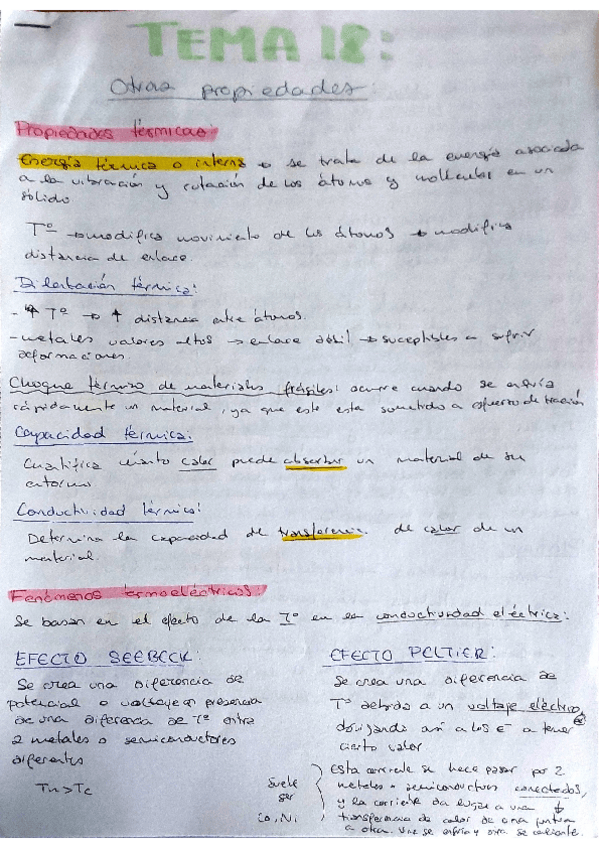 TEMA 18:
Otras propiedades:
Propiedades térmicas:
Energía térmica o interna → se trata de la energía asociada
a la vibración y rotación de los átomos y moléculas en un
sólido
Tº → modifica movimiento de los átomos → modifica
distancia de enlace.
Dilatación térmica:
- ↑ Tº → ↑ distancia entre átomos.
- metales valores altos → enlace débil → suceptibles a sufrir
deformaciones.
Choque térmico de materiales frágiles: ocurre cuando se enfría
rápidamente un material, ya que este esta sometido a esfuerzo de tracción
Capacidad térmica:
Cuantifica cuánto calor puede absorber un material de su
entorno
Conductividad térmica:
Determina la capacidad de transferencia de calor de un
material.
Fenómenos termoeléctricos:
Se basan en el efecto de la Tº en la conductividad eléctrica:
EFECTO SEEBECK:
Se crea una diferencia de
potencial o voltaje en presencia
de una diferencia de Tº entre
2 metales o semiconductores
diferentes
Th > Tc
EFECTO PELTIER:
Se crea una diferencia de
Tº debido a un voltaje eléctrico
obligando así a los e- a tener
cierto valor
Suele
ser
Co, Ni
Esta corriente se hace pasar por 2
metales o semiconductores conectados,
y la corriente da lugar a una
transferencia de calor de una juntura
a otra. Una se enfría y otra se calienta.